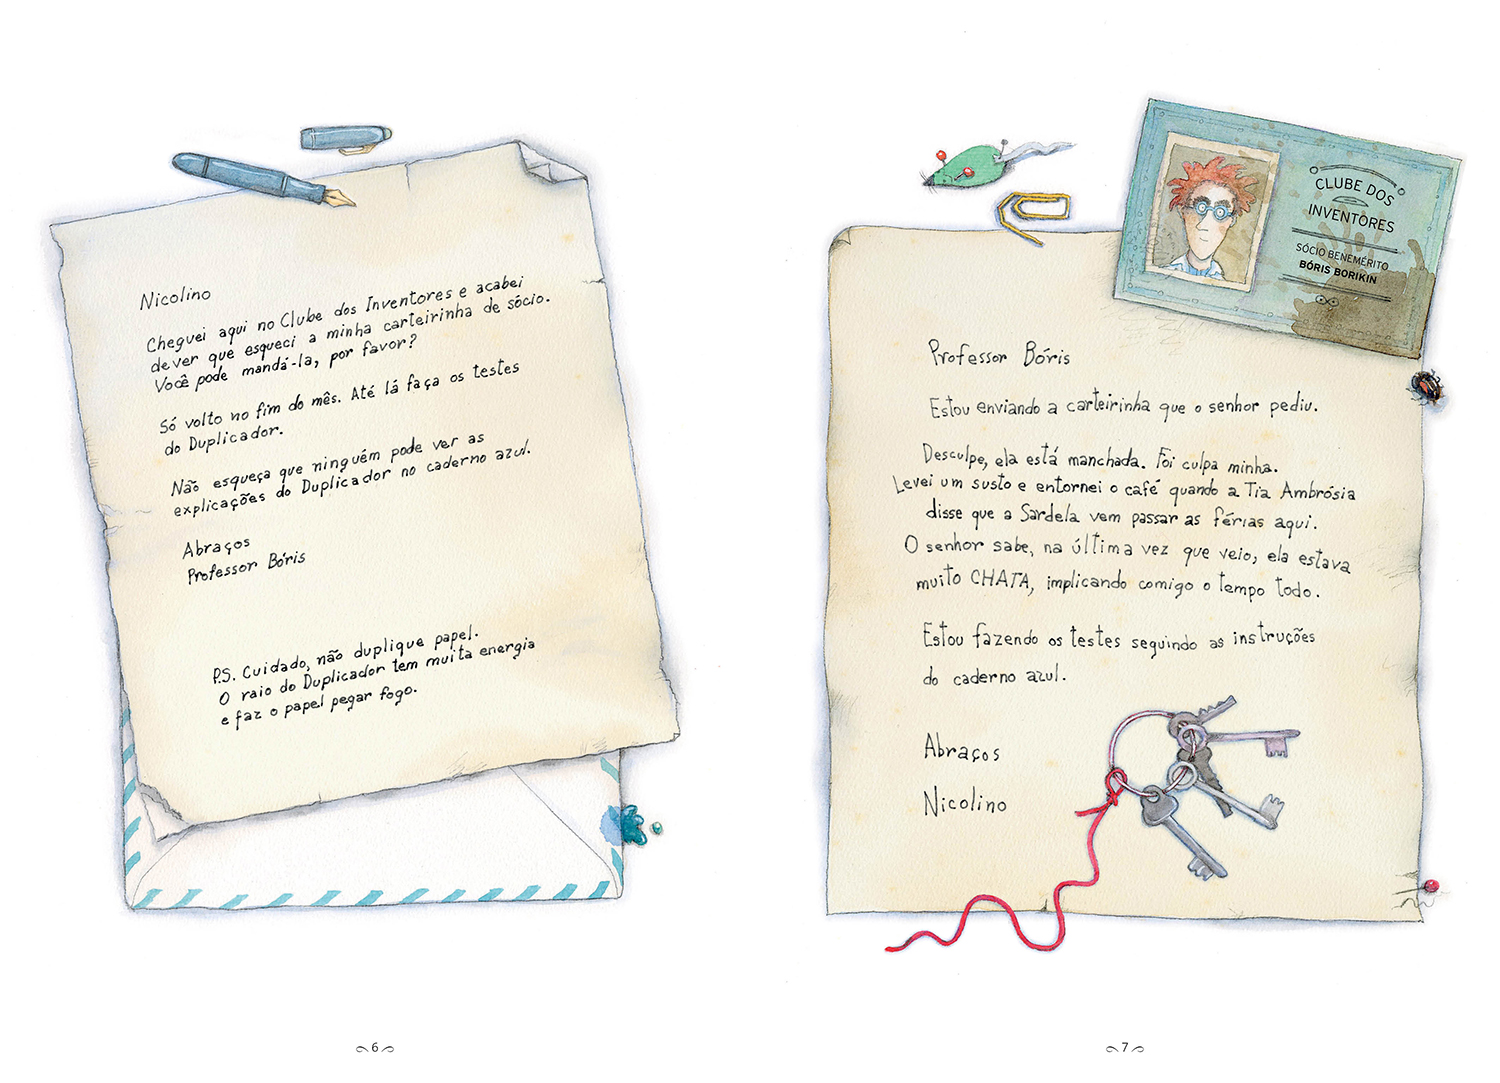 Nicolino
Cheguei aqui no Clube dos Inventores e acabei
de ver que esqueci a minha carteirinha de sócio.
Você pode mandá-la, por favor?
Só volto no fim do mês. Até lá faça os testes
do Duplicador.
Não esqueça que ninguém pode ver as
explicações do Duplicador no caderno azul.
Abraços
Professor Bóris
P.S. Cuidado, não duplique papel.
O raio do Duplicador tem muita energia
e faz o papel pegar fogo.
6
CLUBE DOS
INVENTORES
SÓCIO BENEMÉRITO
BÓRIS BORIKIN
Professor Bóris
Estou enviando a carteirinha que o senhor pediu.
Desculpe, ela está manchada. Foi culpa minha.
Levei um susto e entornei o café quando a Tia Ambrósia
disse que a Sardela vem passar as férias aqui.
O senhor sabe, na última vez que veio, ela estava
muito CHATA, implicando comigo o tempo todo.
Estou fazendo os testes seguindo as instruções
do caderno azul.
Abraços
Nicolino
7